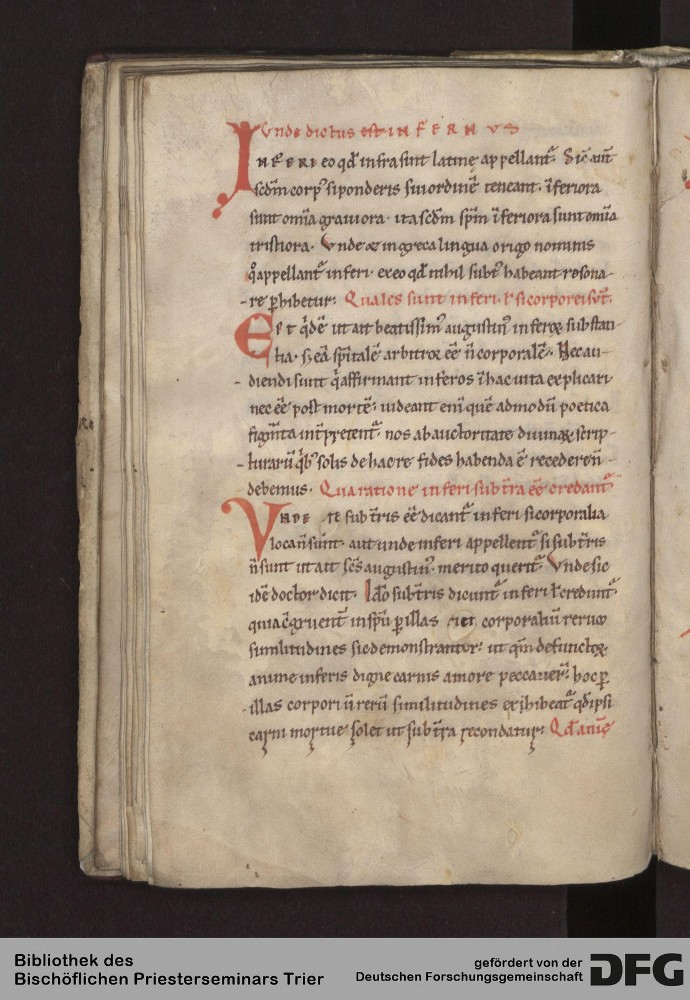 Unde dictus est INFERNUS
INFERI eo qđ infra sunt latine appellant᷑. Sic̄ aūt
scd̄m corp᷒ si ponderis sui ordinē teneant. īferiora
sunt omīa grauiora. ita scd̄m spīm īferiora sunt omīa
tristiora. Vnde & in greca lingua origo nominis
qͦ appellant᷑ inferi. ex eo qđ nihil subt᷒ habeant resona-
re ꝑhibetur. Quales sunt inferi. ł si corporei sūt.
Est qͥdē ut ait beatissim᷒ augustin᷒ inferoꝝ substan-
tia. sꝫ eā spītalē arbitror ēē n̄ corporalē. Nec au-
diendi sunt qͥ affirmant inferos ī hac uita explicari
nec ēē post mortē. uideant enī quē admodū poetica
figm̄ta int̄pretent᷑. nos ab auctoritate diuinaꝝ scrip-
turarū qͥb᷒ solis de hac re fides habenda ē recedere n̄
debemus. Qua ratione inferi sub t̄ra ēē credant᷑
VNDE re sub t̄ris ēē dicant᷑ inferi si corporalia
loca n̄ sunt. aut unde inferi appellent᷑ si sub t̄ris
n̄ sunt ut ait sc̄s augustin᷒. merito querit᷑. Vnde sic
idē doctor dicit. Ideo sub t̄ris dicunt᷑ inferi ł credunt᷑
quia cōgruent᷑ in spū ꝑ illas corporaliū rerum
similitudines sic demonstrantur. ut qm̄ defunctoꝝ
anime inferis digne carnis amore peccauer̄. hoc ꝑ
illas corporiū rerū similitudines exhibeat᷑ qđ ipsi
carni mortue solet ut sub t̄ra recondatur. Qđ anīę
Bibliothek des
Bischöflichen Priesterseminars Trier
gefördert von der
Deutschen Forschungsgemeinschaft
DFG